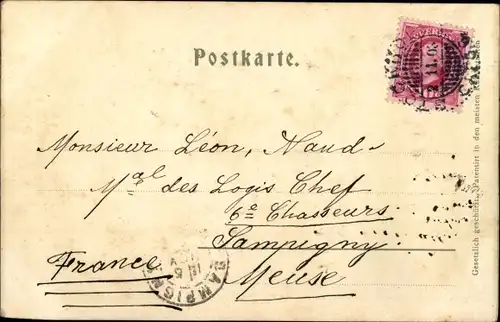 Postkarte.
SVERIGE
Monsieur Léon, Naud-
Mal des Logis Chef
6e Chasseurs
Sampigny
France Meuse
SAMPIGNY
Gesetzlich geschützt, Patentirt in den meisten